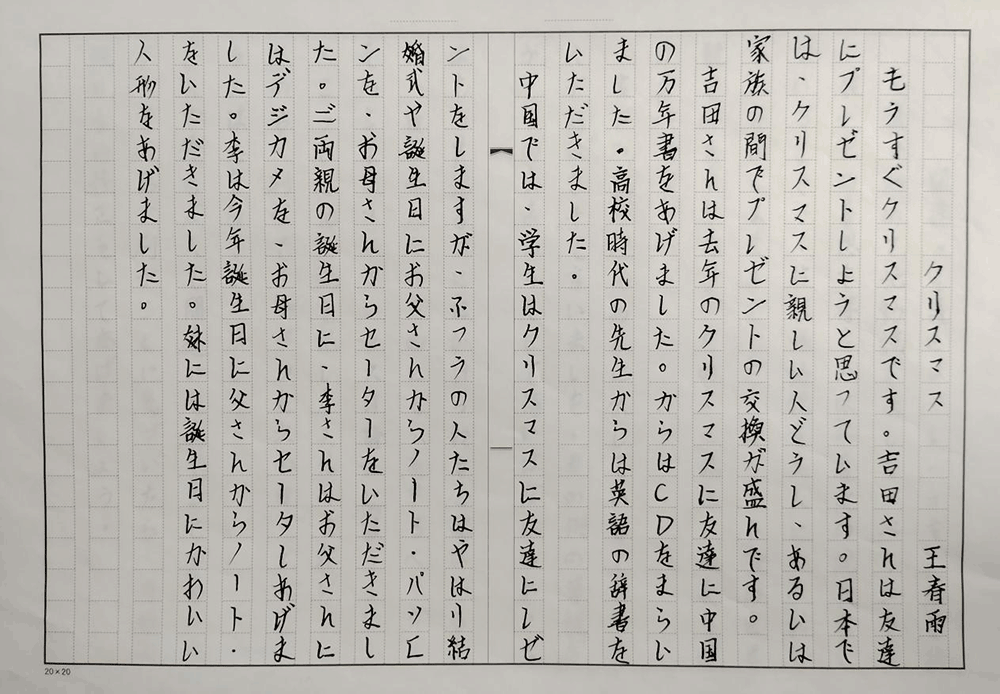 クリスマス　　　　王春雨
もうすぐクリスマスです。吉田さんは友達
にプレゼントしようと思っています。日本で
は、クリスマスに親しい人どうし、あるいは
家族の間でプレゼントの交換が盛んです。
吉田さんは去年のクリスマスに友達に中国
の万年書をあげました。からはCDをまらい
ました。高校時代の先生からは英語の辞書を
いただきました。
中国では、学生はクリスマスに友達にレゼ
ントをしますが、ふつうの人たちはやはり結
婚式や誕生日にお父さんからノート・パソ
ンを、お母さんからセーターをいただきまし
た。ご両親の誕生日に、李さんはお父さんに
はデジカメを、お母さんからセータしあげま
した。李は今年誕生日に父さんからノート・
をいただきました。妹には誕生日にかわいい
人形をあげました。
20×20